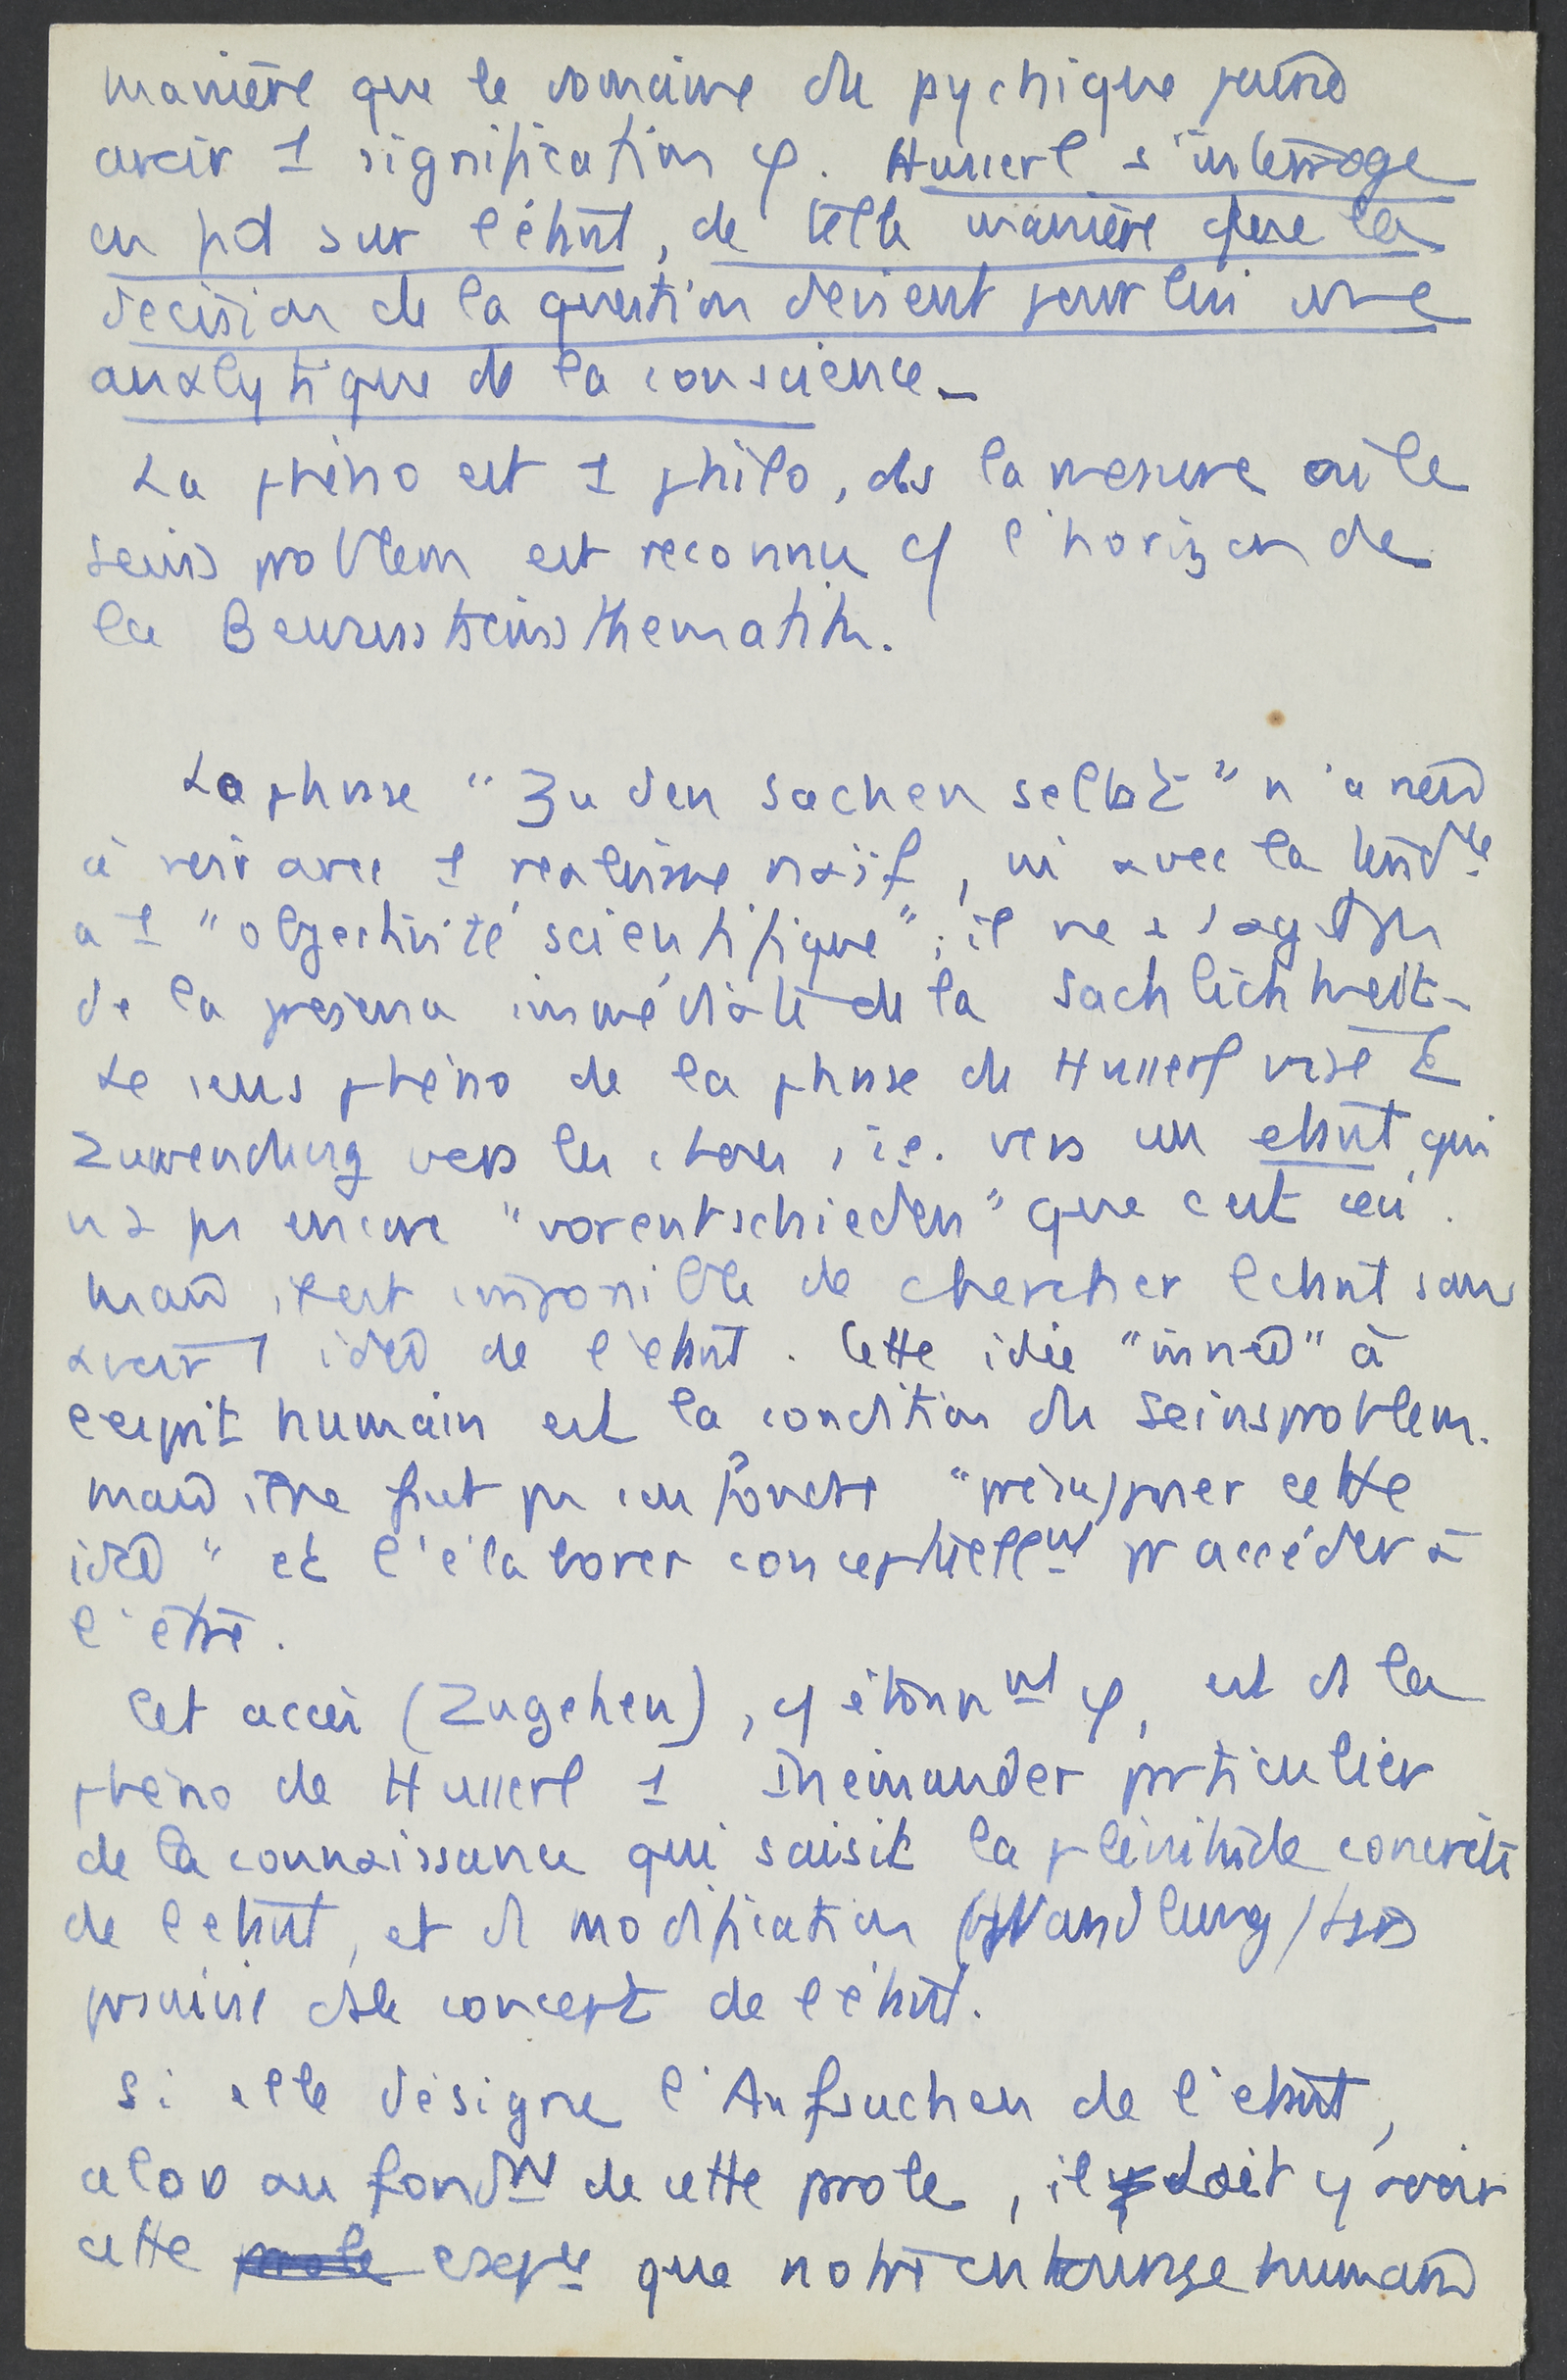 manière que le domaine du pychique puisse
avoir 1 signification φ. Husserl s'interroge
en fd sur l'étant, de telle manière que la
décision de la question devient pour lui une
analytique de la conscience_
La phéno est 1 philo, ds la mesure où le
Seinsproblem est reconnu cf l'horizon de
la Bewusstseinsthematik.
La phrase "Zu den Sachen selbst" n'a rien
à voir avec 1 réalisme naïf, ni avec la
à 1 "objectivité scientifique"; il ne s'agit pas
de la présence immédiate de la Sachlichkeit_
Le sens phéno de la phrase de Husserl vise
Zuwendung vers les choses, i.e. vers un étant qui
n'a pas encore "vorentschieden" que c'est ceci.
mais il est impossible de chercher l'étant sans
avoir 1 idée de l'étant. Cette idée "innée" à
l'esprit humain est la condition du Seinsproblem.
mais il ne faut pas "présupposer cette
idée" et l'élaborer conceptuellmt pr accéder à
l'être.
Cet accès (Zugehen), cf étonnmt φ, est ds la
phéno de Husserl 1 Ineinander particulier
de la connaissance qui saisit la plénitude concrète
de l'étant, et ds modification (Wandlung)
ds le concept de l'étant.
Si elle désigne l'Aufsuchen de l'étant,
alors au fondmt de cette parole, il doit y avoir
cette expce que notre entourage humain